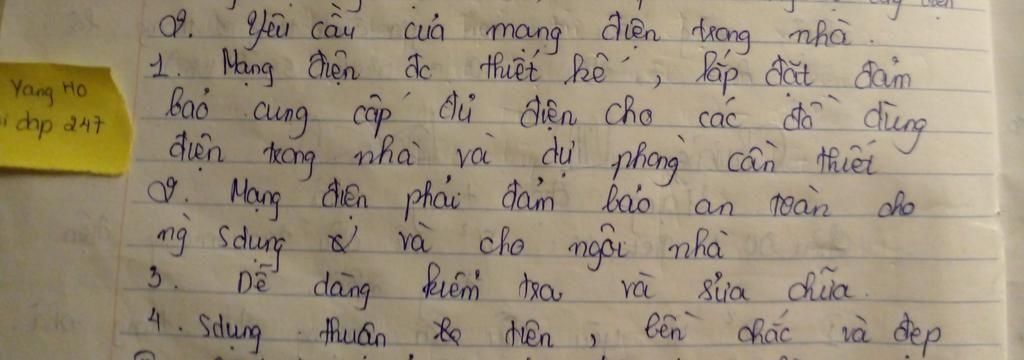 2. Yêu cầu của mạng điện trong nhà.
1. Mạng điện đc thiết kế, lắp đặt đảm
bảo cung cấp đủ điện cho các đồ dùng
điện trong nhà và dự phòng cần thiết
2. Mạng điện phải đảm bảo an toàn cho
ng` sdụng và cho ngôi nhà
3. Dễ dàng kiểm tra và sửa chữa.
4. Sdụng thuận tiện, bền chắc và đẹp
Yang Ho
dap 247